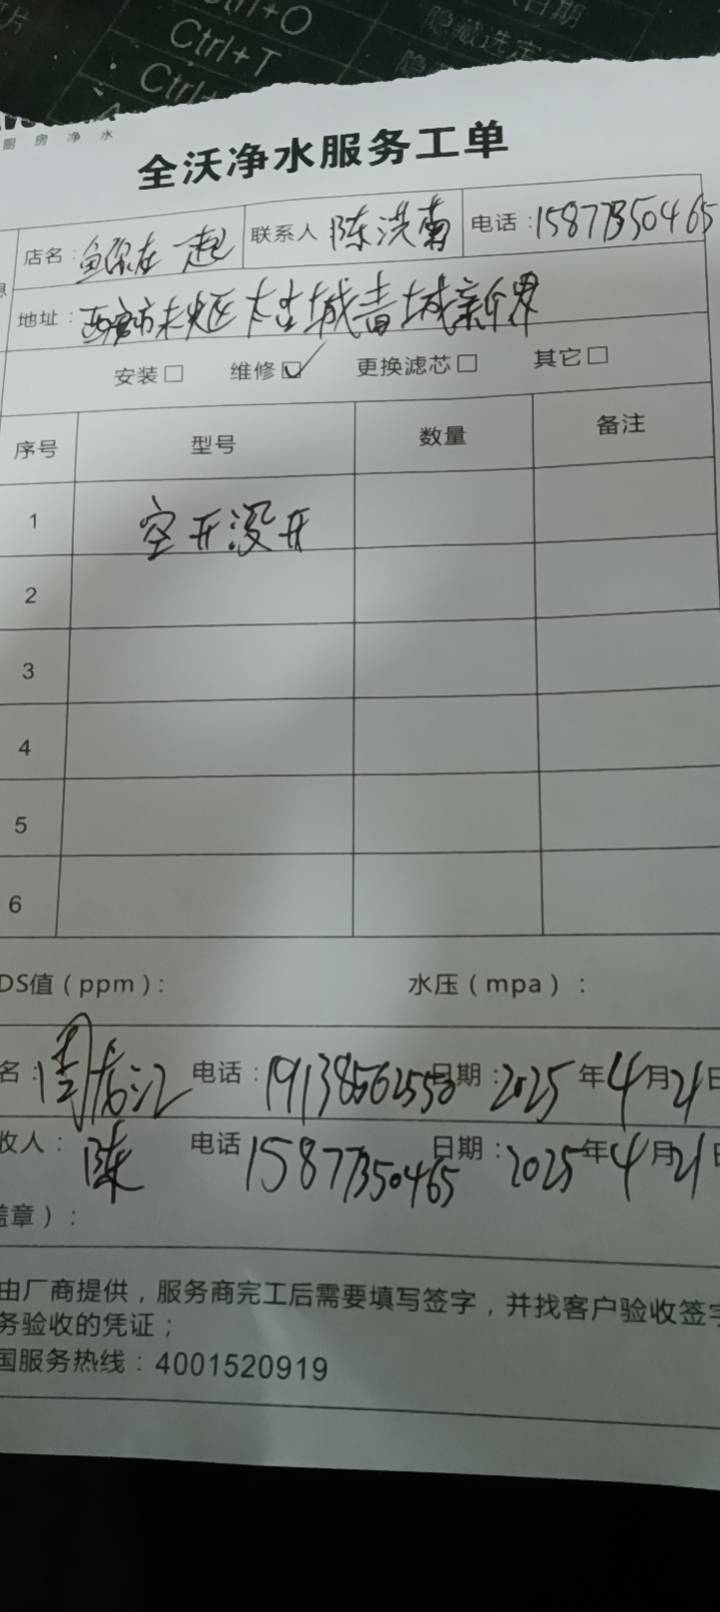 Ctrl+O
日期
Ctrl+T
隐藏选定行
Ctrl+
隐
厨房净水
全沃净水服务工单
店名：鱼你在一起 联系人 陈洪南 电话：15877350465
地址：西安市未央区太古城青城新界
安装□ 维修☑ 更换滤芯□ 其它□
序号 型号 数量 备注
1 空开没开
2
3
4
5
6
DS值（ppm）： 水压（mpa）：
名：周龙江 电话：19138562550 日期：2025年4月21日
收人：陈 电话 15877350465 日期：2025年4月21日
盖章）：
由厂商提供，服务商完工后需要填写签字，并找客户验收签字
务验收的凭证；
国服务热线：4001520919